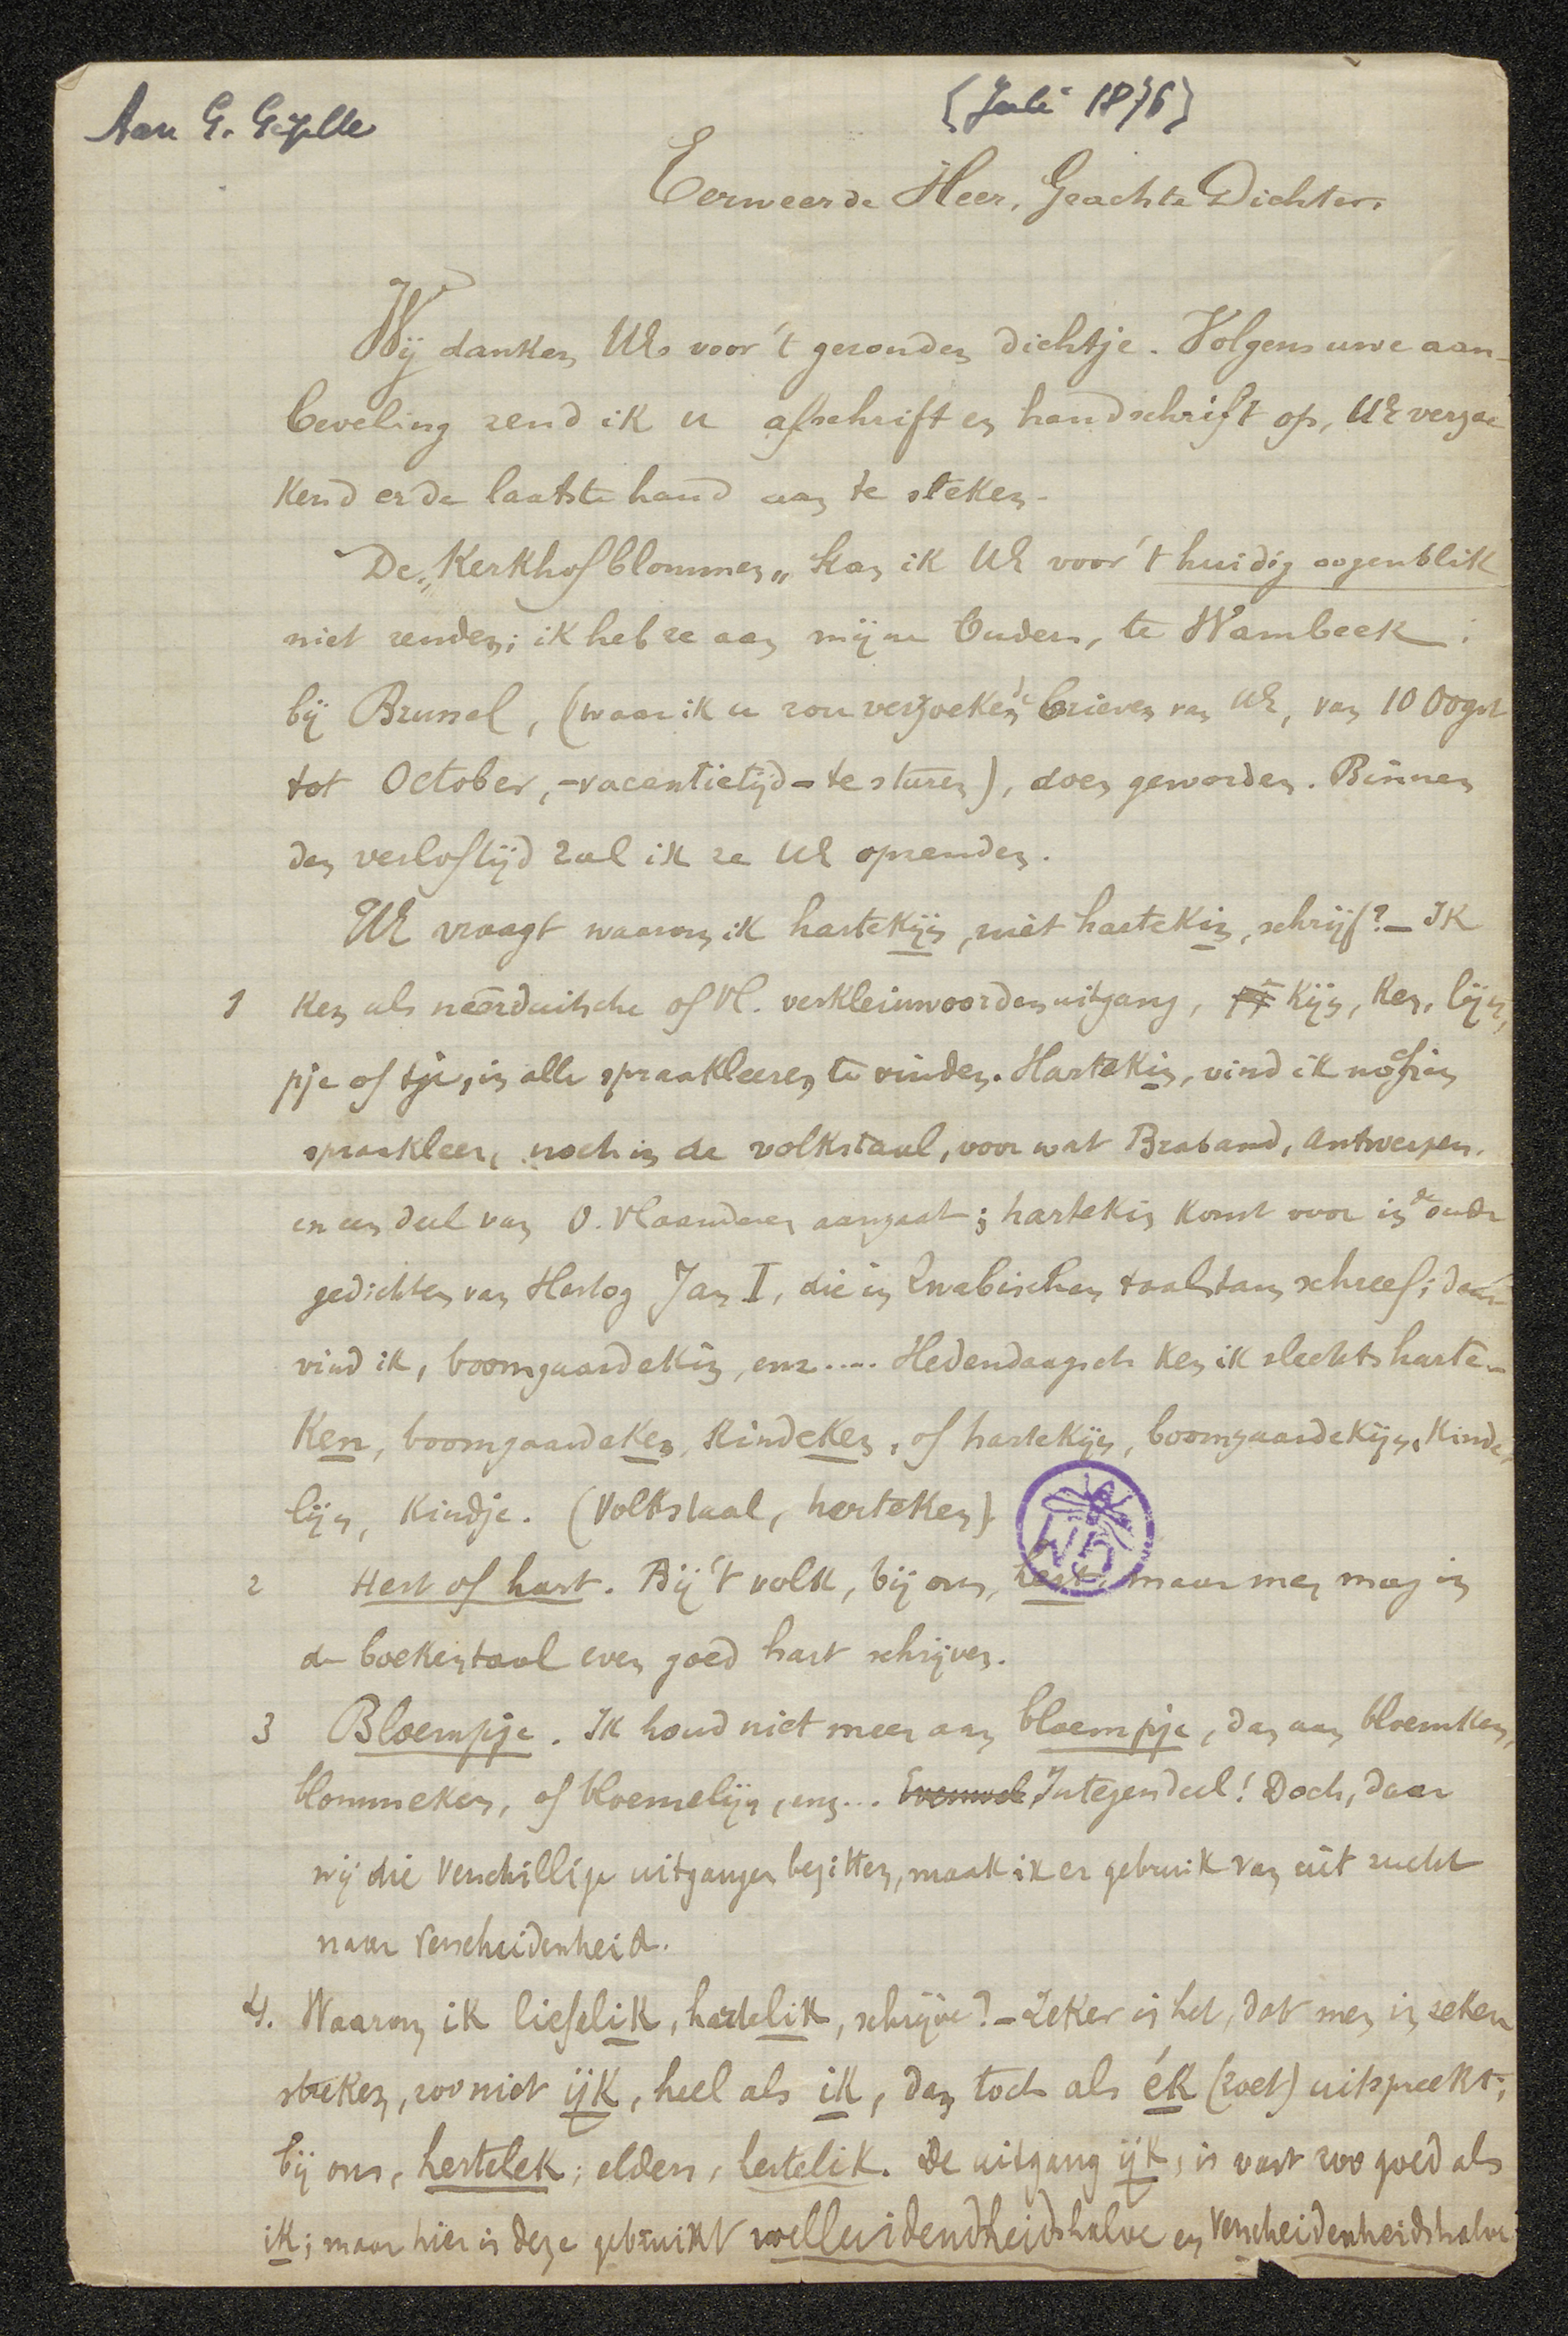 Aan G. Gezelle
[Juli 1876]
Eerweerde Heer, Geachte Dichter.
Wij danken UE voor 't gezonden dichtje. Volgens uwe aan-
beveling zend ik u afschrift en handschrift op, UE verzoe
kend er de laatste hand aan te steken.
De „Kerkhofblommen„ kan ik UE voor 't huidig oogenblik
niet zenden; ik heb ze aan mijne Ouders, te Wambeek
bij Brussel, (waar ik u zou verzoeken brieven van UE, van 10 Oogst
tot October, -vacantietijd- te sturen), doen geworden. Binnen
den verloftijd zal ik ze UE opzenden.
UE vraagt waarom ik hartekijn, niet hartekin, schrijf? - Ik
1 ken als neêrduitsche of Vl. verkleinwoordenuitgang, kijn, ken, lijn,
pje of tje, in alle spraakleeren te vinden. Hartekin, vind ik noch in
spraakleer, noch in de volkstaal, voor wat Braband, Antwerpen.
en een deel van O. Vlaanderen aangaat; hartekin komt voor in de oude
gedichten van Hertog Jan I, die in Zwabischen taalstam schreef; daar
vind ik, boomgaardekin, enz..... Hedendaagsch ken ik slechts harte-
ken, boomgaardeken, kindeken, of hartekijn, boomgaardekijn, kinde-
lijn, kindje. (Volkstaal, herteken)
2 Hert of hart. Bij 't volk, bij ons, hert, maar men mag in
de boekentaal even goed hart schrijven.
3 Bloempje. Ik houd niet meer aan bloempje, dan aan bloemken,
blommeken, of bloemelijn, enz... Evenwel Integendeel! Doch, daar
wij die verschillige uitgangen bezitten, maak ik er gebruik van uit zucht
naar verscheidenheid.
4. Waarom ik liefelik, hartelik, schrijve? - Zeker is het, dat men in zekere
streken, zoo niet ijk, heel als ik, dan toch als ék (zoet) uitspreekt;
bij ons, hertelek; elders, hertelik. De uitgang ijk, is vast zoo goed als
ik; maar hier is deze gebruikt welluidendheidshalve en verscheidenheidshalve